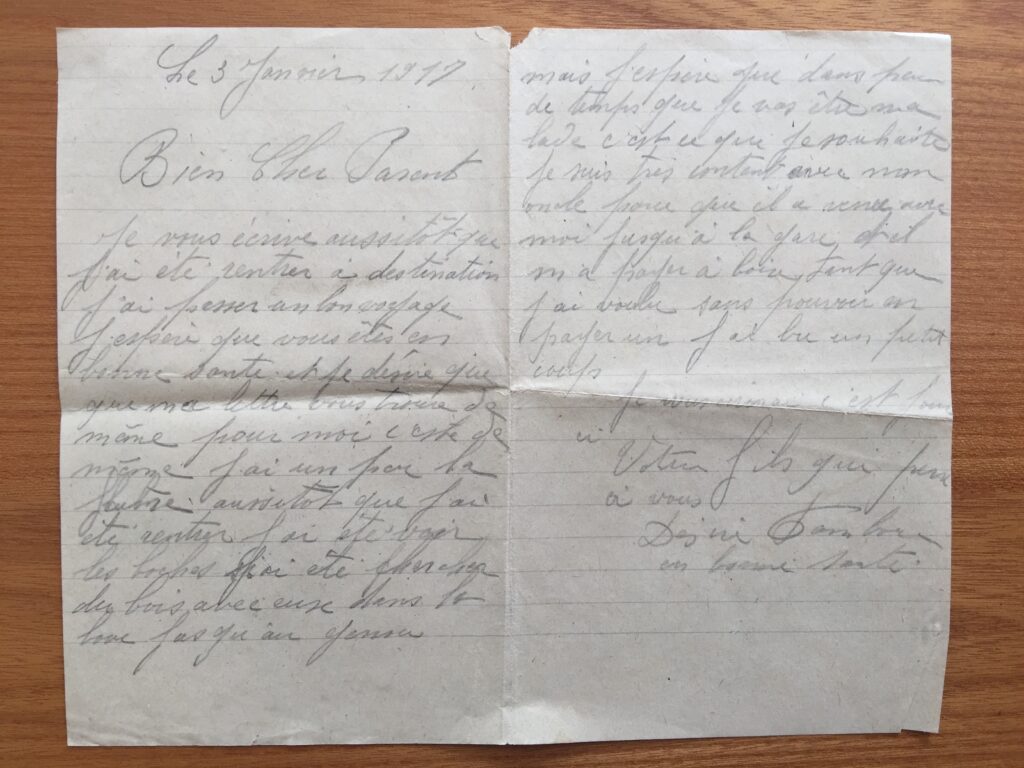 Le 3 Janvier 1917
Bien Cher Parent
Je vous écrive aussitôt que
j'ai été rentrer à destination
j'ai passer un bon voyage
J'espère que vous êtes en
bonne santé et je désire que
que ma lettre vous trouve de
même pour moi c'est de
même j'ai un peu la
aussitot que j'ai
été rentrer j'ai été voir
les boches j'ai été chercher
du bois avec euse dans la
boue jusqu'au genou
mais j'espère que dans peu
de temps que je vas être ma
lade c'est ce que je souhaite
Je suis très content avec mon
oncle parce que il a venu avec
moi jusqu'à la gare et il
m'a payer à boire tant que
j'ai voulu sans pouvoir en
payer un j'ai bu un petit
coup
Je c'est
Votre fils qui pense
à vous
Désiré
en bonne santé